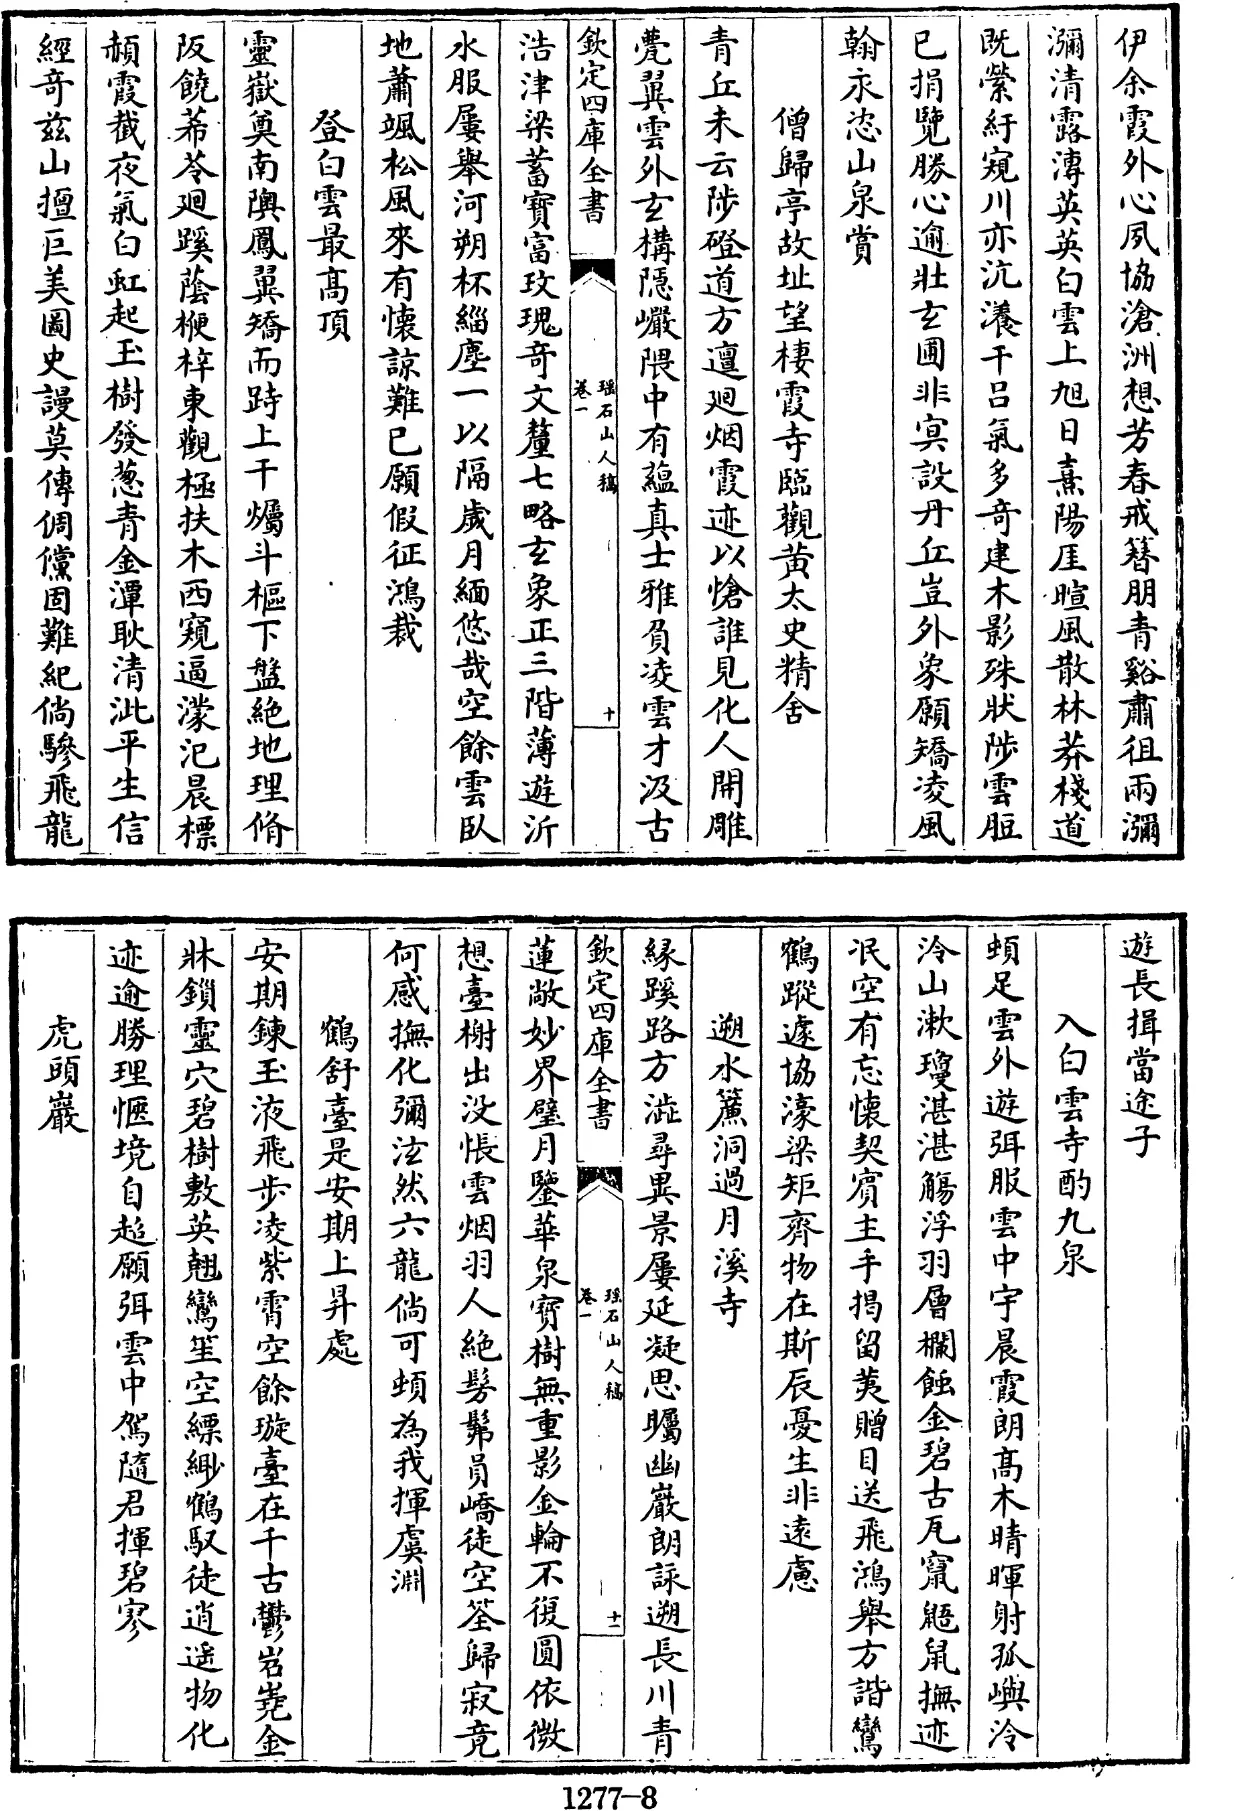 伊余霞外心夙協滄洲想芳春戒簪朋青谿肅徂兩瀰
瀰清露漙英英白雲上旭日熹陽厓暄風散林莽棧道
既縈紆窺川亦沆瀁干呂氣多奇建木影殊狀陟雲脰
已捐覽勝心逾壯玄圃非㝠設丹丘豈外象願矯凌風
翰永恣山泉賞
僧歸亭故址望棲霞寺臨觀黄太史精舍
青丘未云陟磴道方邅迴烟霞迹以愴誰見化人開雕
甍翼雲外玄構隱巖隈中有藴真士雅負凌雲才汲古
欽定四庫全書
瑶石山人稿
卷一
十
浩津梁蓄寶富玫瑰奇文釐七略玄象正三階薄遊沂
水服屢舉河朔杯緇塵一以隔歲月緬悠哉空餘雲臥
地蕭颯松風來有懷諒難已願假征鴻裁
登白雲最髙頂
靈嶽奠南隩鳳翼矯而跱上干爥斗樞下盤絶地理脩
阪饒茀苓迴蹊蔭楩梓東觀極扶木西窺逼濛汜晨標
頳霞截夜氣白虹起玉樹發葱青金潭耿清泚平生信
經奇兹山擅巨美圖史謾莫傳倜儻固難紀倘驂飛龍
遊長揖當途子
入白雲寺酌九泉
蝢足雲外遊弭服雲中宇晨霞朗髙木晴暉射孤嶼泠
泠山漱瓊湛湛觴浮羽層欄蝕金碧古瓦竄鼯鼠撫迹
泯空有忘懷契賔主手掲留荑贈目送飛鴻舉方諧鸞
鶴蹤遽協濠梁矩齊物在斯辰憂生非遠慮
遡水簾洞過月溪寺
縁蹊路方澁尋異景屢延凝思矚幽巖朗詠遡長川青
欽定四庫全書
瑶石山人稿
卷一
十一
蓮敞妙界璧月鑒華泉寳樹無重影金輪不復圓依微
想臺榭出没悵雲烟羽人絶髣髴員嶠徒空筌歸寂竟
何感撫化彌泫然六龍倘可頓為我揮虞淵
鶴舒臺是安期上昇處
安期鍊玉液飛步凌紫霄空餘璇臺在千古鬱岧嶤金
牀鎖靈穴碧樹敷英翹鸞笙空縹緲鶴馭徒逍遥物化
迹逾勝理愜境自超願弭雲中駕隨君揮碧寥
虎頭巖
1277-8